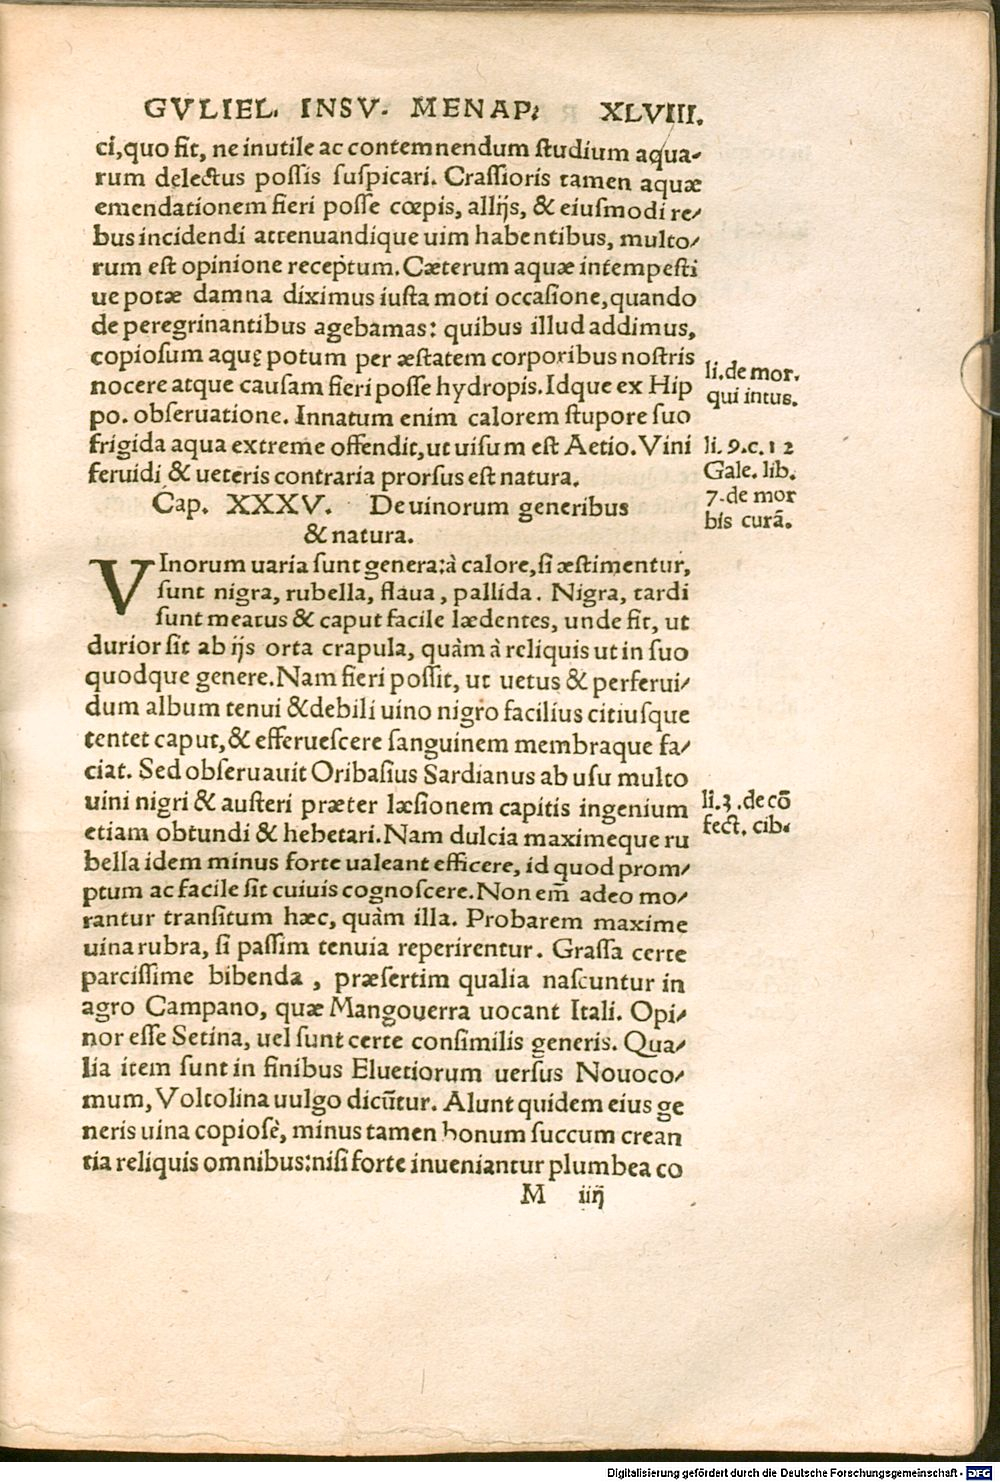 GVLIEL. INSV. MENAP. XLVIII.
ci, quo fit, ne inutile ac contemnendum studium aqua-
rum delectus possis suspicari. Crassioris tamen aquæ
emendationem fieri posse cœpis, allijs, & eiusmodi re-
bus incidendi attenuandique uim habentibus, multo-
rum est opinione receptum. Cæterum aquæ intempesti
ue potæ damna diximus iusta moti occasione, quando
de peregrinantibus agebamas: quibus illud addimus,
copiosum aquę potum per æstatem corporibus nostris
nocere atque causam fieri posse hydropis. Idque ex Hip
po. obseruatione. Innatum enim calorem stupore suo
frigida aqua extreme offendit, ut uisum est Aetio. Vini
feruidi & ueteris contraria prorsus est natura.
li. de mor.
qui intus.
li. 9. c. 12
Gale. lib.
7. de mor
bis curã.
Cap. XXXV. De uinorum generibus
& natura.
VInorum uaria sunt genera: à calore, si æstimentur,
sunt nigra, rubella, flaua, pallida. Nigra, tardi
sunt meatus & caput facile lædentes, unde fit, ut
durior sit ab ijs orta crapula, quàm à reliquis ut in suo
quodque genere. Nam fieri possit, ut uetus & perferui-
dum album tenui & debili uino nigro facilius citiusque
tentet caput, & efferuescere sanguinem membraque fa-
ciat. Sed obseruauit Oribasius Sardianus ab usu multo
uini nigri & austeri præter læsionem capitis ingenium
etiam obtundi & hebetari. Nam dulcia maximeque ru
bella idem minus forte ualeant efficere, id quod prom-
ptum ac facile sit cuiuis cognoscere. Non em̃ adeo mo-
rantur transitum hæc, quàm illa. Probarem maxime
uina rubra, si passim tenuia reperirentur. Grassa certe
parcissime bibenda, præsertim qualia nascuntur in
agro Campano, quæ Mangouerra uocant Itali. Opi-
nor esse Setina, uel sunt certe consimilis generis. Qua-
lia item sunt in finibus Eluetiorum uersus Nouoco-
mum, Voltolina uulgo dicũtur. Alunt quidem eius ge
neris uina copiosè, minus tamen bonum succum crean
tia reliquis omnibus: nisi forte inueniantur plumbea co
li. 3. de cõ
fect. cib.
M iiij
Digitalisierung gefördert durch die Deutsche Forschungsgemeinschaft - DFG